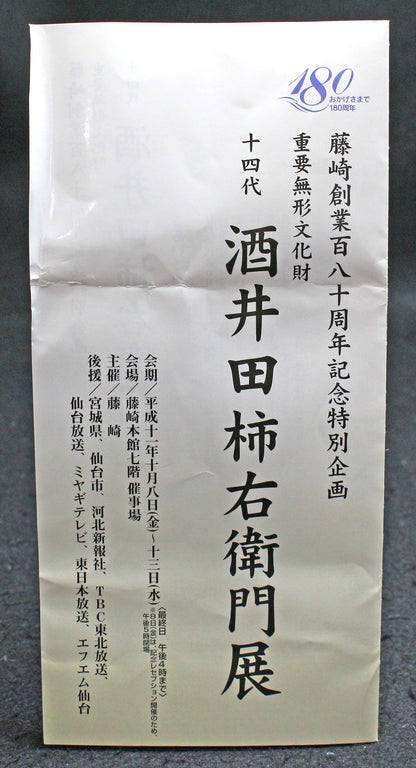 180
おかげさまで
180周年
藤崎創業百八十周年記念特別企画
重要無形文化財
十四代
酒井田柿右衛門展
会期／平成十一年十月八日(金)～十三日(水)
〈最終日 午後4時まで〉
※8日(金)は、記念レセプション開催のため、
午後5時閉場
会場／藤崎本館七階 催事場
主催／藤 崎
後援／宮城県、仙台市、河北新報社、TBC東北放送、
仙台放送、ミヤギテレビ、東日本放送、エフエム仙台